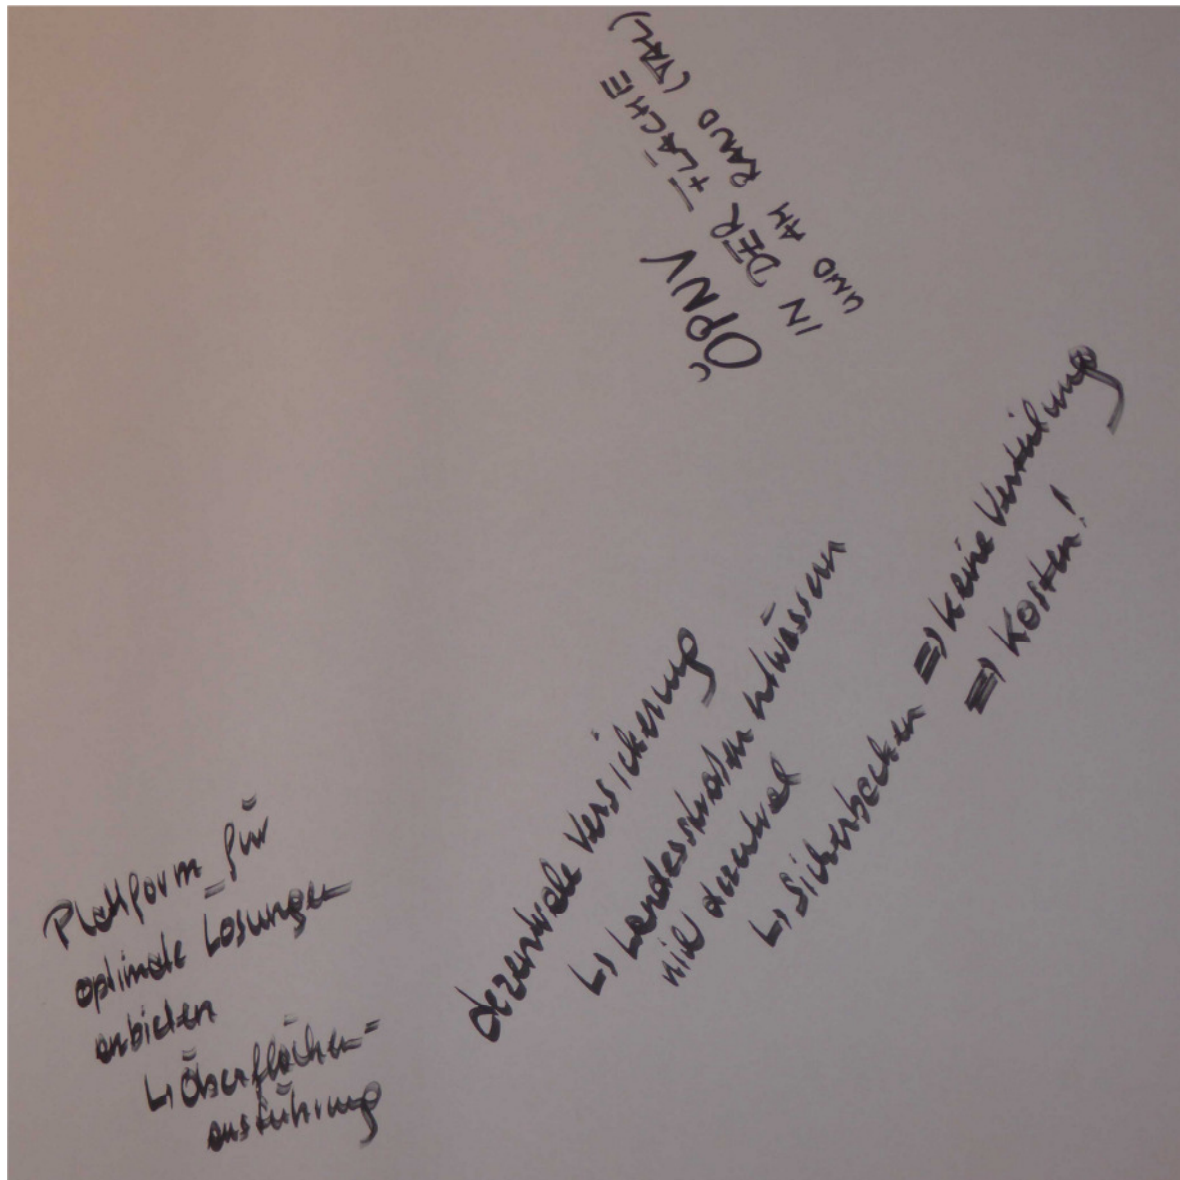 ÖPNV
IN DER FLÄCHE
UND AM RAND (TAL)
dezentrale Versickerung
↳ Landesstraßen entwässern
nie dezentral
↳ Sickerbecken ⇒ keine Verteilung
⇒ Kosten!
Plattform für
optimale Lösungen
anbieten
↳ Oberflächen=
ausführung